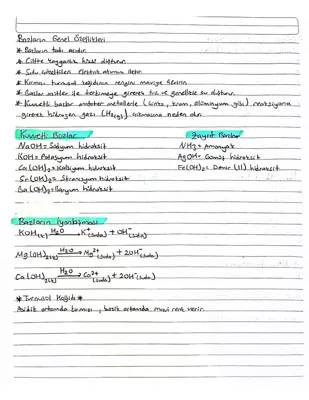 Bazların Genel Özellikleri
* Bazların tadı acıdır.
* Ciltte kayganlık hissi oluşturur.
* Sulu çözeltileri elektrik akımını iletir.
* Kırmızı turnusol kağıdının rengini maviye çevirir.
* Bazlar asitler ile tepkimeye girerek tuz ve genellikle su oluşturur.
* Kuvvetli bazlar amfoter metallerle (çinko, krom, alüminyum gibi) reaksiyona
girerek hidrojen gazı (H₂(g)) oluşmasına neden olur.
Kuvvetli Bazlar Zayıf Bazlar
NaOH = Sodyum hidroksit NH₃ = Amonyak
KOH = Potasyum hidroksit AgOH = Gümüş hidroksit
Ca(OH)₂ = Kalsiyum hidroksit Fe(OH)₂ = Demir (II) hidroksit
Sr(OH)₂ = Stronsiyum hidroksit
Ba(OH)₂ = Baryum hidroksit
Bazların İyonlaşması
KOH(k) H₂O → K⁺(suda) + OH⁻(suda)
Mg(OH)₂(k) H₂O → Mg²⁺(suda) + 2OH⁻(suda)
Ca(OH)₂(k) H₂O → Ca²⁺(suda) + 2OH⁻(suda)
* Turnusol Kağıdı *
Asidik ortamda kırmızı, bazik ortamda mavi renk verir.